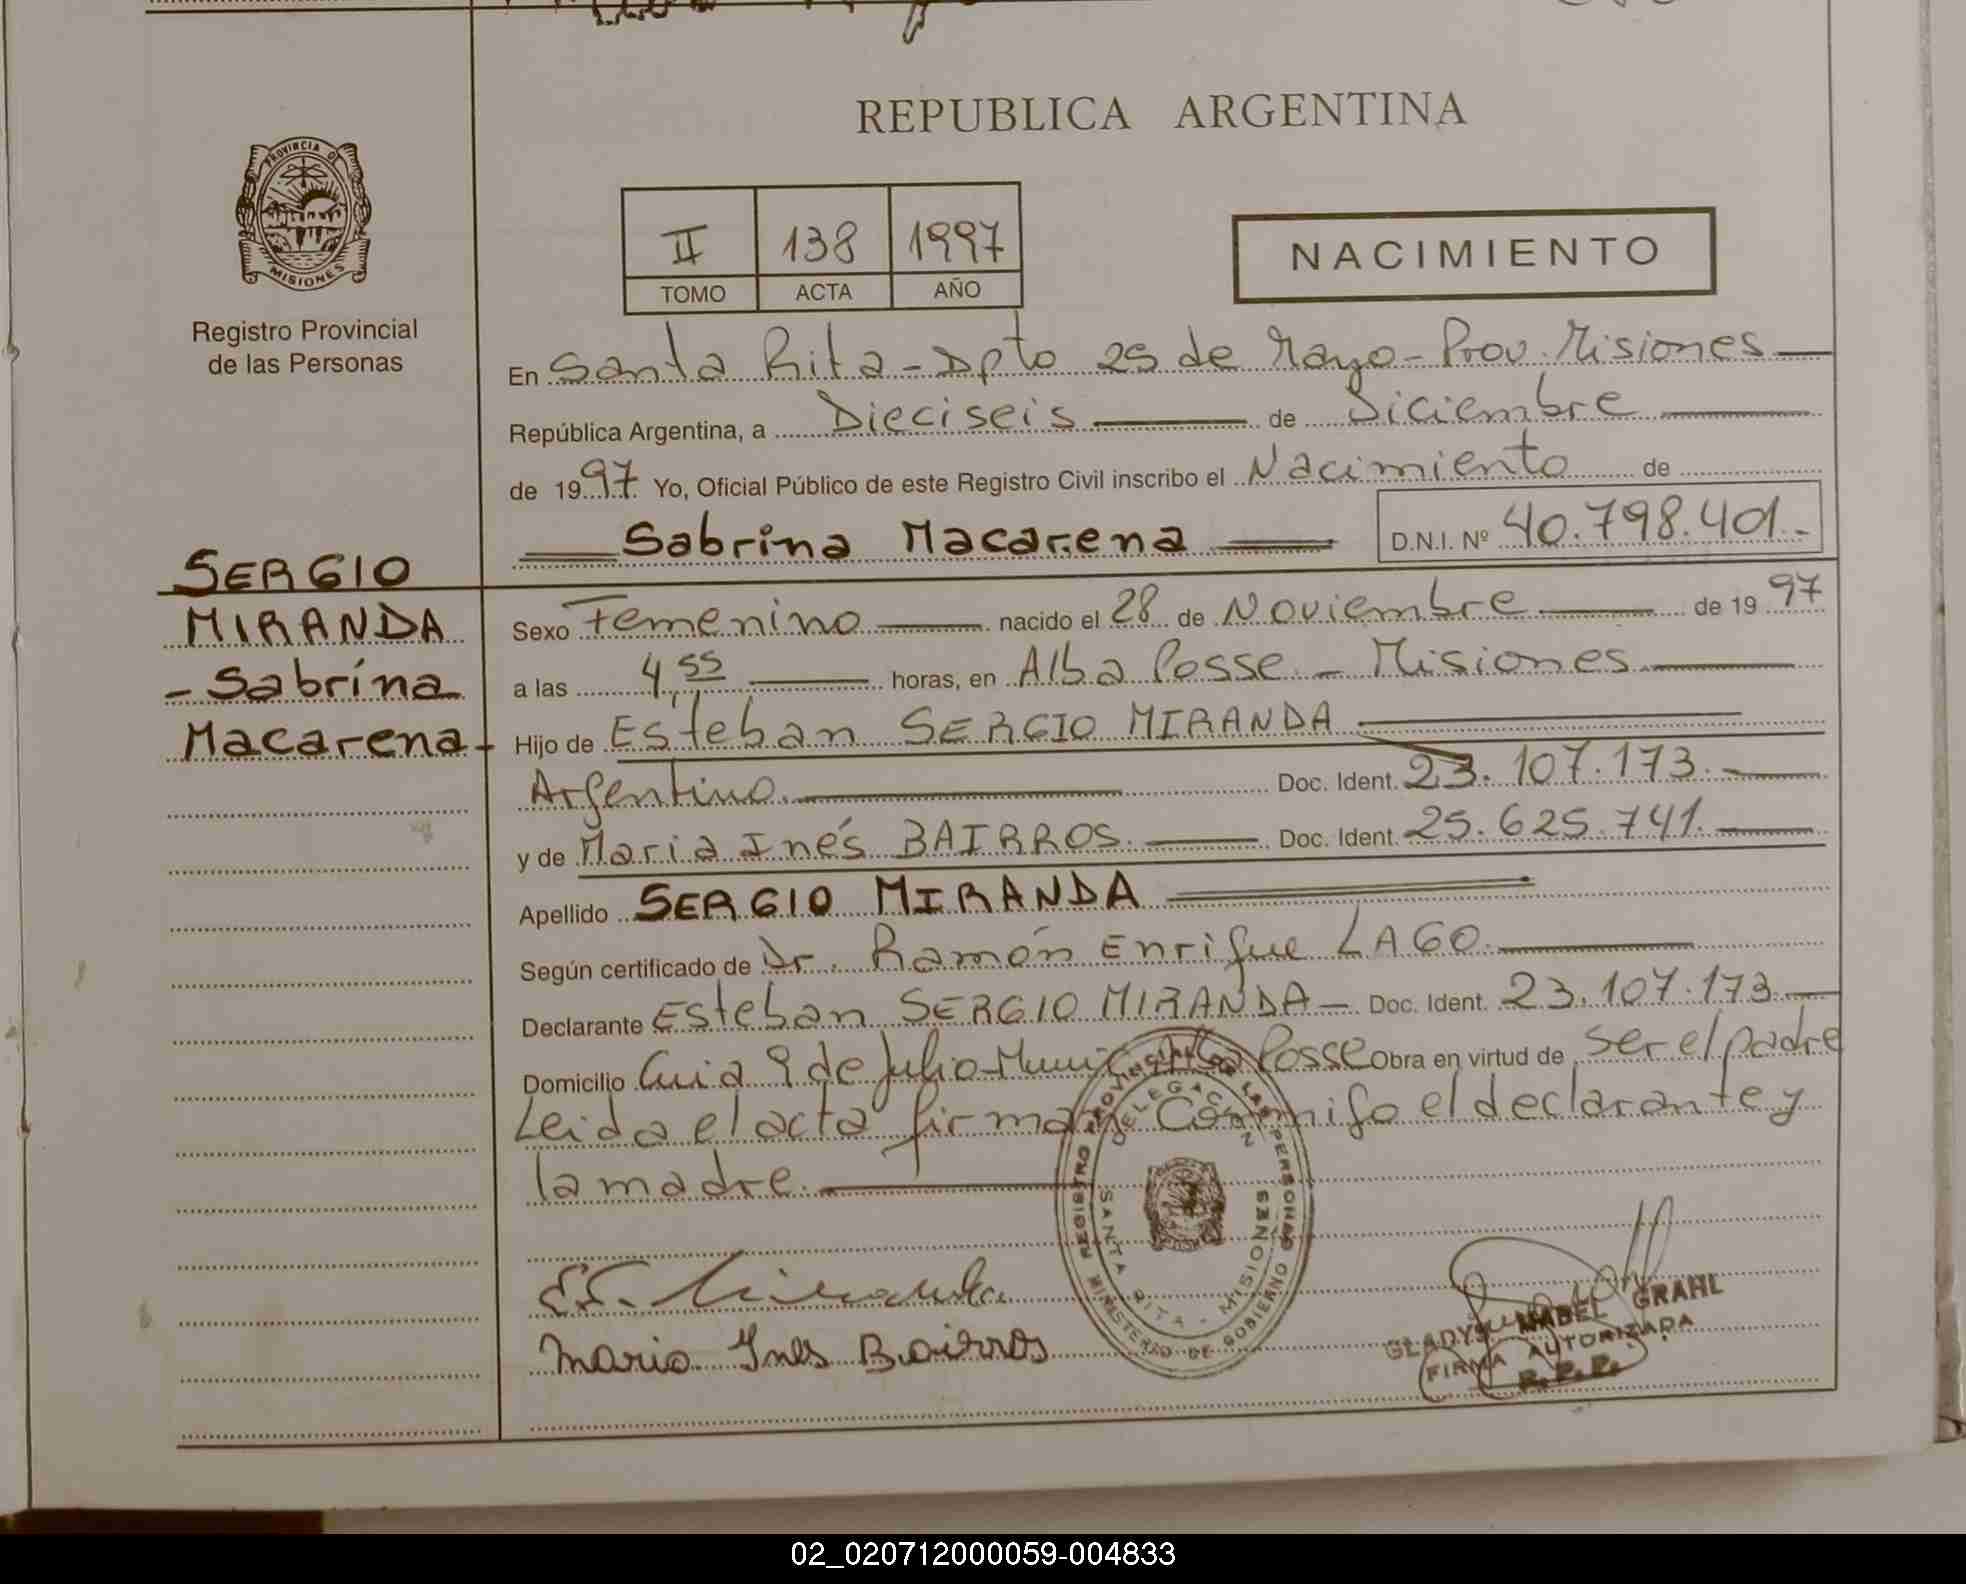 REPUBLICA ARGENTINA
PROVINCIA DE
MISIONES
Registro Provincial
de las Personas
II 138 1997
TOMO ACTA AÑO
NACIMIENTO
En Santa Rita - Dpto 25 de Mayo - Prov. Misiones
República Argentina, a Dieciseis de Diciembre
de 1997 Yo, Oficial Público de este Registro Civil inscribo el Nacimiento de
Sabrina Macarena D.N.I. Nº 40.798.401.-
SERGIO
MIRANDA
- Sabrina
Macarena -
Sexo Femenino nacido el 28 de Noviembre de 1997
a las 4,55 horas, en Alba Posse - Misiones
Hijo de Esteban SERGIO MIRANDA
Argentino. Doc. Ident. 23.107.173.
y de Maria Inés BAIRROS. Doc. Ident. 25.625.741.
Apellido SERGIO MIRANDA
Según certificado de Dr. Ramón Enrique LAGO.
Declarante Esteban SERGIO MIRANDA - Doc. Ident. 23.107.173.
Domicilio Cuia 9 de Julio-Munic. Alba Posse Obra en virtud de ser el padre
Leida el acta firman Conmigo el declarante y
la madre.
REGISTRO PROVINCIAL DE LAS PERSONAS
MINISTERIO DE GOBIERNO
DELEGACION
SANTA RITA - MISIONES
E.S. Miranda
Maria Ines Bairros
GLADYS MABEL GRAHL
FIRMA AUTORIZADA
R.P.P.
02_020712000059-004833